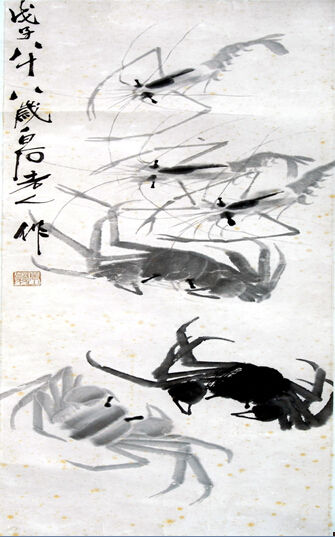 戊子八十八歲白石老人作